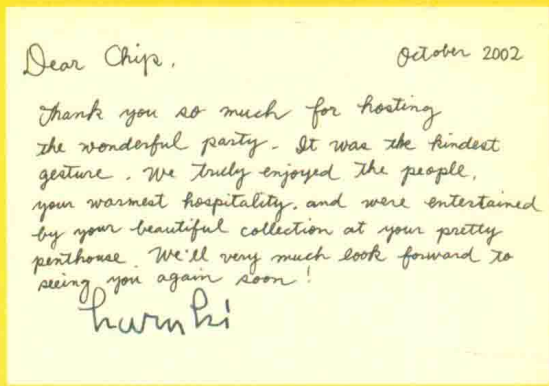 Dear Chip,
October 2002
Thank you so much for hosting
the wonderful party. It was the kindest
gesture. We truly enjoyed the people,
your warmest hospitality, and were entertained
by your beautiful collection at your pretty
penthouse. We'll very much look forward to
seeing you again soon!
haruki